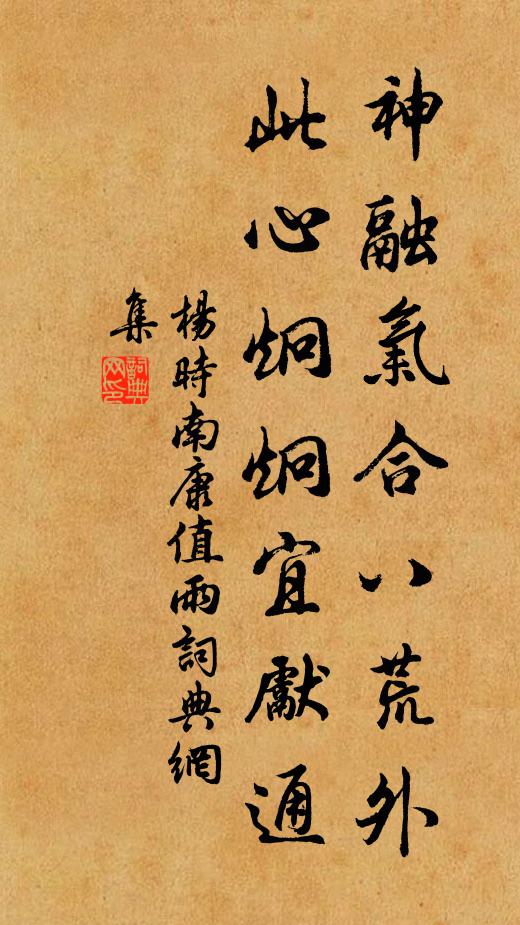 神融氣合八荒外
此心炯炯宜獻通
楊時南康值雨詞典網
集
詞典网印